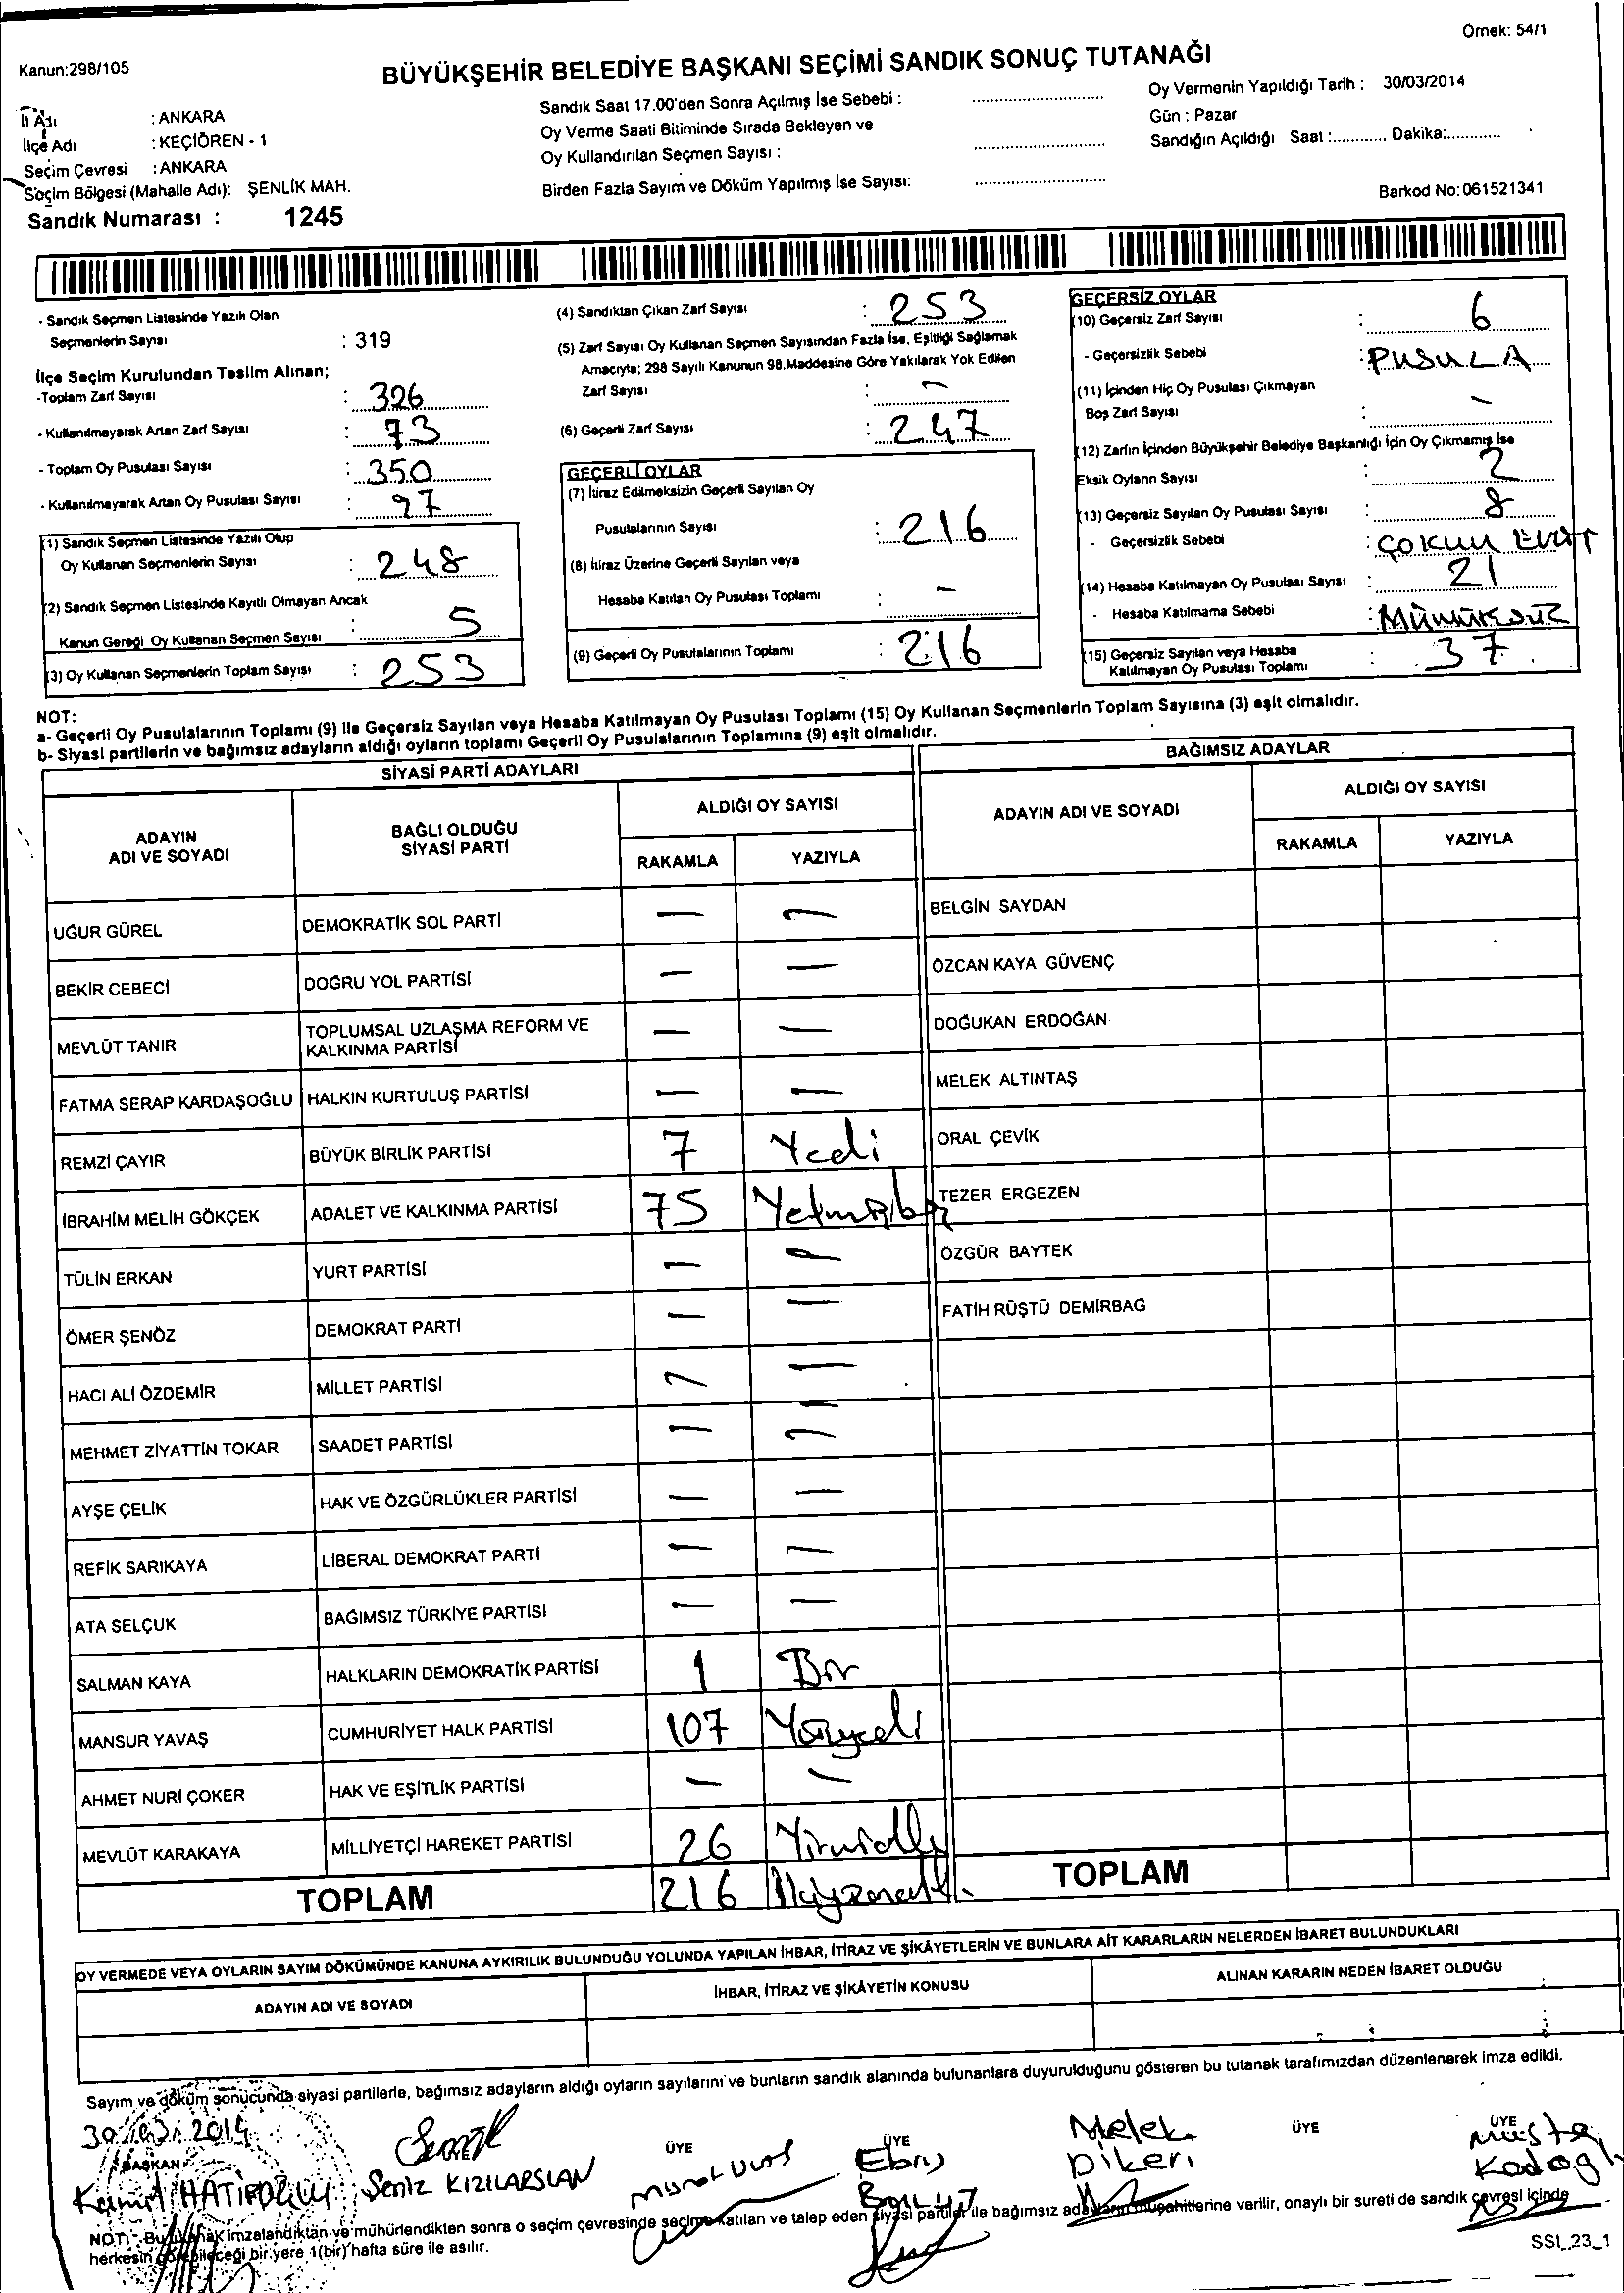 Örnek: 54/1
Kanun;298/105
BÜYÜKŞEHİR BELEDİYE BAŞKANI SEÇİMİ SANDIK SONUÇ TUTANAĞI
İl Adı : ANKARA
İlçe Adı : KEÇİÖREN - 1
Seçim Çevresi : ANKARA
Seçim Bölgesi (Mahalle Adı): ŞENLİK MAH.
Sandık Numarası : 1245
Sandık Saat 17.00'den Sonra Açılmış İse Sebebi :
Oy Verme Saati Bitiminde Sırada Bekleyen ve
Oy Kullandırılan Seçmen Sayısı :
Birden Fazla Sayım ve Döküm Yapılmış İse Sayısı:
Oy Vermenin Yapıldığı Tarih : 30/03/2014
Gün : Pazar
Sandığın Açıldığı Saat :............ Dakika:............
Barkod No: 061521341
- Sandık Seçmen Listesinde Yazılı Olan
Seçmenlerin Sayısı : 319
İlçe Seçim Kurulundan Teslim Alınan;
-Toplam Zarf Sayısı : 326
- Kullanılmayarak Artan Zarf Sayısı : 73
- Toplam Oy Pusulası Sayısı : 350
- Kullanılmayarak Artan Oy Pusulası Sayısı : 97
(1) Sandık Seçmen Listesinde Yazılı Olup
Oy Kullanan Seçmenlerin Sayısı : 248
(2) Sandık Seçmen Listesinde Kayıtlı Olmayan Ancak
Kanun Gereği Oy Kullanan Seçmen Sayısı : 5
(3) Oy Kullanan Seçmenlerin Toplam Sayısı : 253
(4) Sandıktan Çıkan Zarf Sayısı : 253
(5) Zarf Sayısı Oy Kullanan Seçmen Sayısından Fazla İse, Eşitliği Sağlamak
Amacıyla; 298 Sayılı Kanunun 98.Maddesine Göre Yakılarak Yok Edilen
Zarf Sayısı : –
(6) Geçerli Zarf Sayısı : 247
GEÇERLİ OYLAR
(7) İtiraz Edilmeksizin Geçerli Sayılan Oy
Pusulalarının Sayısı : 216
(8) İtiraz Üzerine Geçerli Sayılan veya
Hesaba Katılan Oy Pusulası Toplamı : –
(9) Geçerli Oy Pusulalarının Toplamı : 216
GEÇERSİZ OYLAR
(10) Geçersiz Zarf Sayısı : 6
- Geçersizlik Sebebi : PUSULA
(11) İçinden Hiç Oy Pusulası Çıkmayan
Boş Zarf Sayısı : –
(12) Zarfın İçinden Büyükşehir Belediye Başkanlığı İçin Oy Çıkmamış İse
Eksik Oyların Sayısı 2
(13) Geçersiz Sayılan Oy Pusulası Sayısı : 8
- Geçersizlik Sebebi :
(14) Hesaba Katılmayan Oy Pusulası Sayısı : 21
- Hesaba Katılmama Sebebi :
(15) Geçersiz Sayılan veya Hesaba
Katılmayan Oy Pusulası Toplamı : 37
NOT:
a- Geçerli Oy Pusulalarının Toplamı (9) ile Geçersiz Sayılan veya Hesaba Katılmayan Oy Pusulası Toplamı (15) Oy Kullanan Seçmenlerin Toplam Sayısına (3) eşit olmalıdır.
b- Siyasi partilerin ve bağımsız adayların aldığı oyların toplamı Geçerli Oy Pusulalarının Toplamına (9) eşit olmalıdır.
SİYASİ PARTİ ADAYLARI
ADAYIN ADI VE SOYADI
BAĞLI OLDUĞU SİYASİ PARTİ
ALDIĞI OY SAYISI
RAKAMLA YAZIYLA
UĞUR GÜREL DEMOKRATİK SOL PARTİ – –
BEKİR CEBECİ DOĞRU YOL PARTİSİ – –
MEVLÜT TANIR TOPLUMSAL UZLAŞMA REFORM VE KALKINMA PARTİSİ – –
FATMA SERAP KARDAŞOĞLU HALKIN KURTULUŞ PARTİSİ – –
REMZİ ÇAYIR BÜYÜK BİRLİK PARTİSİ 7 Yedi
İBRAHİM MELİH GÖKÇEK ADALET VE KALKINMA PARTİSİ 75 Yetmişbeş
TÜLİN ERKAN YURT PARTİSİ – –
ÖMER ŞENÖZ DEMOKRAT PARTİ – –
HACI ALİ ÖZDEMİR MİLLET PARTİSİ – –
MEHMET ZİYATTİN TOKAR SAADET PARTİSİ – –
AYŞE ÇELİK HAK VE ÖZGÜRLÜKLER PARTİSİ – –
REFİK SARIKAYA LİBERAL DEMOKRAT PARTİ – –
ATA SELÇUK BAĞIMSIZ TÜRKİYE PARTİSİ – –
SALMAN KAYA HALKLARIN DEMOKRATİK PARTİSİ 1 Bir
MANSUR YAVAŞ CUMHURİYET HALK PARTİSİ 107 Yüzyedi
AHMET NURİ ÇOKER HAK VE EŞİTLİK PARTİSİ – –
MEVLÜT KARAKAYA MİLLİYETÇİ HAREKET PARTİSİ 26 Yirmialtı
TOPLAM 216 İkiyüzonaltı
BAĞIMSIZ ADAYLAR
ADAYIN ADI VE SOYADI
ALDIĞI OY SAYISI
RAKAMLA YAZIYLA
BELGİN SAYDAN
ÖZCAN KAYA GÜVENÇ
DOĞUKAN ERDOĞAN
MELEK ALTINTAŞ
ORAL ÇEVİK
TEZER ERGEZEN
ÖZGÜR BAYTEK
FATİH RÜŞTÜ DEMİRBAĞ
TOPLAM
OY VERMEDE VEYA OYLARIN SAYIM DÖKÜMÜNDE KANUNA AYKIRILIK BULUNDUĞU YOLUNDA YAPILAN İHBAR, İTİRAZ VE ŞİKÂYETLERİN VE BUNLARA AİT KARARLARIN NELERDEN İBARET BULUNDUKLARI
ADAYIN ADI VE SOYADI İHBAR, İTİRAZ VE ŞİKÂYETİN KONUSU ALINAN KARARIN NEDEN İBARET OLDUĞU
Sayım ve döküm sonucunda siyasi partilerle, bağımsız adayların aldığı oyların sayılarını ve bunların sandık alanında bulunanlara duyurulduğunu gösteren bu tutanak tarafımızdan düzenlenerek imza edildi.
30/03/2014
BAŞKAN ÜYE ÜYE ÜYE ÜYE
Seniz KIZILARSLAN
Murat ULAS
Ebru
Melek Dikeri
NOT: Bu tutanak imzalandıktan ve mühürlendikten sonra o seçim çevresinde seçime katılan ve talep eden siyasi partiler ile bağımsız adayların müşahitlerine verilir, onaylı bir sureti de sandık çevresi içinde
herkesin görebileceği bir yere 1(bir) hafta süre ile asılır.
SSI_23_1